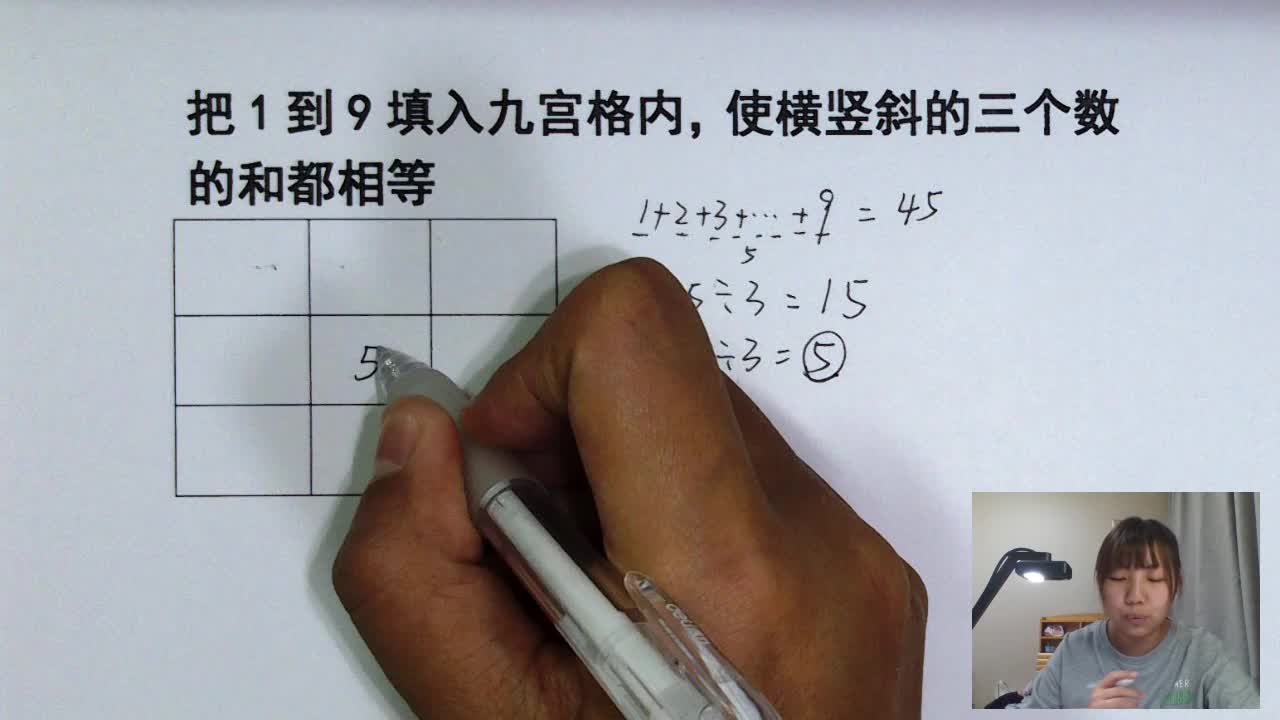 把1到9填入九宫格内，使横竖斜的三个数
的和都相等
1+2+3+…+9=45
5
5÷3=15
÷3=5
5